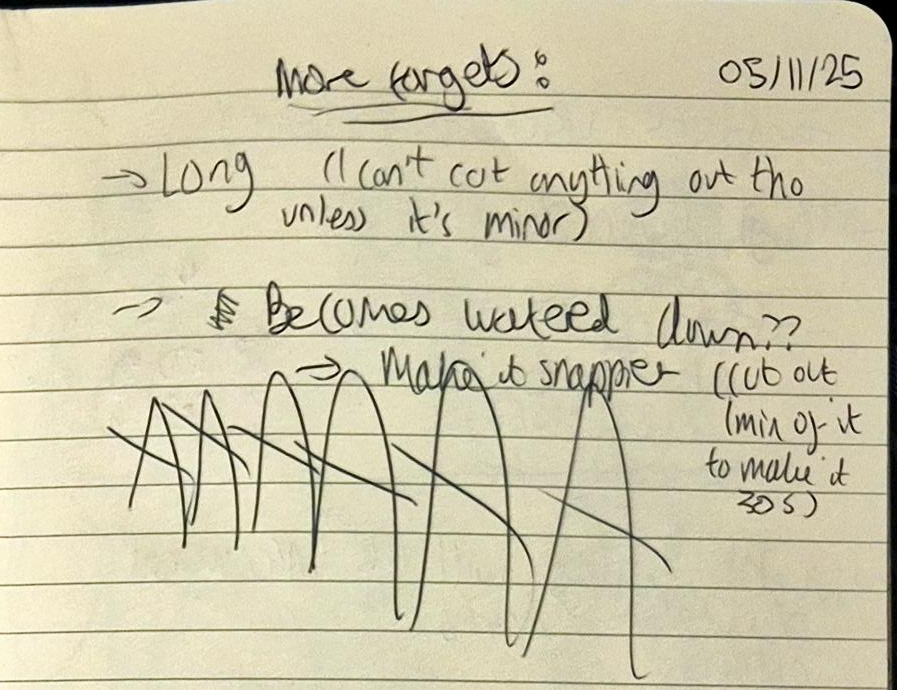 More targets: 05/11/25
→ Long (I can't cut anything out tho
unless it's minor)
→ Becomes wateed down??
→ Make it snappier (cut out
1min of it
to make it
30s)